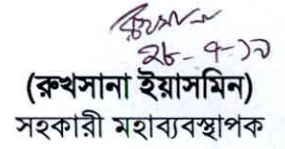 রুখসানা
২৮-৭-১৯
(রুখসানা ইয়াসমিন)
সহকারী মহাব্যবস্থাপক